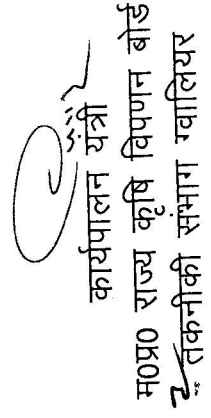 कार्यपालन यंत्री
म0प्र0 राज्य कृषि विपणन बोर्ड
तकनीकी संभाग ग्वालियर